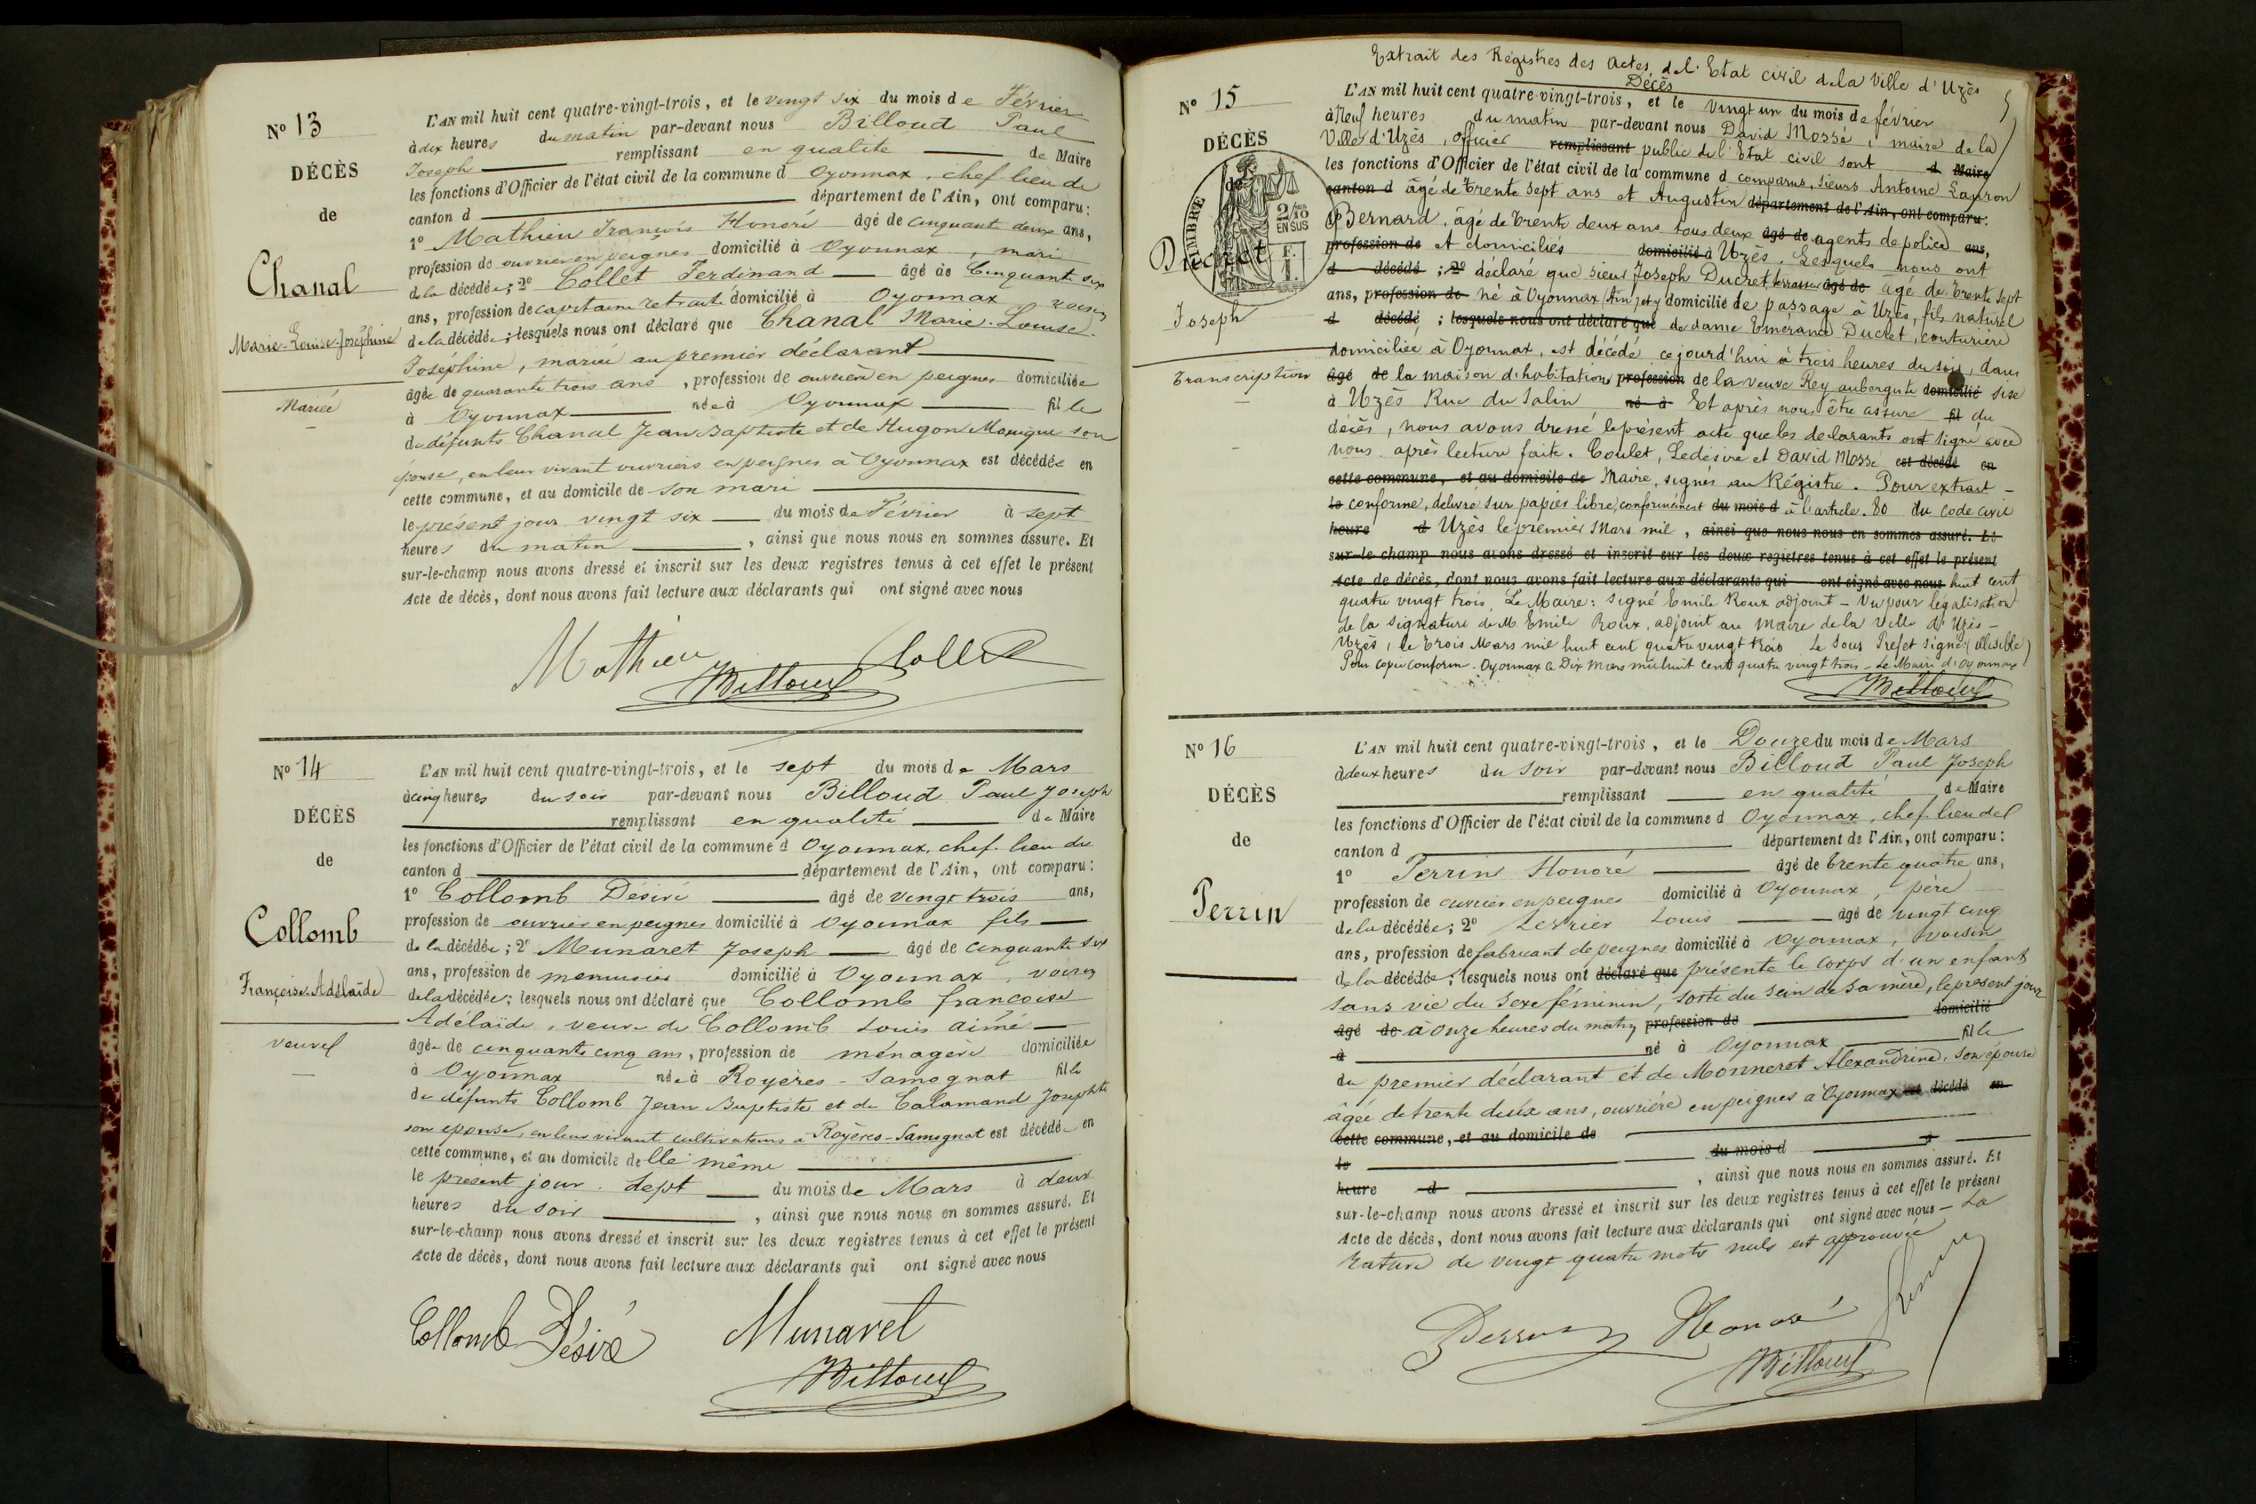 N° 13
DÉCÈS
de
Chanal
Marie-Louise-Joséphine
Mariée
L'AN mil huit cent quatre-vingt-trois, et le vingt six du mois de Février
à dix heures du matin par-devant nous Billoud Paul
Joseph remplissant en qualité de Maire
les fonctions d'Officier de l'état civil de la commune d Oyonnax, chef lieu de
canton d département de l'Ain, ont comparu:
1° Mathieu François Honoré âgé de cinquante deux ans,
profession de ouvrier en peignes domicilié à Oyonnax, mari
de la décédée; 2° Collet Ferdinand âgé de Cinquante six
ans, profession de capitaine retraité domicilié à Oyonnax voisin
de la décédée; lesquels nous ont déclaré que Chanal Marie-Louise-
Joséphine, mariée au premier déclarant
âgée de quarante trois ans, profession de ouvrière en peignes domiciliée
à Oyonnax née à Oyonnax fille
de défunts Chanal Jean Baptiste et de Hugon Monique son
épouse, en leur vivant ouvriers en peignes à Oyonnax est décédée en
cette commune, et au domicile de son mari
le présent jour vingt six du mois de Février à sept
heures du matin, ainsi que nous nous en sommes assuré. Et
sur-le-champ nous avons dressé et inscrit sur les deux registres tenus à cet effet le présent
Acte de décès, dont nous avons fait lecture aux déclarants qui ont signé avec nous
Mathieu Collet
Billoud
N° 14
DÉCÈS
de
Collomb
Françoise-Adélaïde
veuve
L'AN mil huit cent quatre-vingt-trois, et le sept du mois de Mars
à cinq heures du soir par-devant nous Billoud Paul Joseph
remplissant en qualité de Maire
les fonctions d'Officier de l'état civil de la commune d Oyonnax, chef-lieu de
canton d département de l'Ain, ont comparu:
1° Collomb Désiré âgé de vingt trois ans,
profession de ouvrier en peignes domicilié à Oyonnax fils
de la décédée; 2° Munaret Joseph âgé de cinquante six
ans, profession de menuisier domicilié à Oyonnax, voisin
de la décédée; lesquels nous ont déclaré que Collomb françoise
Adélaïde, veuve de Collomb Louis aimé
âgée de cinquante cinq ans, profession de ménagère domiciliée
à Oyonnax née à Royères-Samognat fille
de défunts Collomb Jean Baptiste et de Calamand Josephte
son épouse, en leur vivant cultivateurs à Royères-Samognat est décédée en
cette commune, et au domicile delle même
le présent jour sept du mois de Mars à deux
heures du soir, ainsi que nous nous en sommes assuré. Et
sur-le-champ nous avons dressé et inscrit sur les deux registres tenus à cet effet le présent
Acte de décès, dont nous avons fait lecture aux déclarants qui ont signé avec nous
Collomb Désiré Munaret
Billoud
Extrait des Régistres des actes de l'Etat civil de la Ville d'Uzès
Décès
N° 15
DÉCÈS
de
TIMBRE
2/10 EN SUS
Ducret
Joseph
Transcription
L'AN mil huit cent quatre-vingt-trois, et le vingt un du mois de février
à Neuf heures du matin par-devant nous David Mossé, maire de la
Ville d'Uzès, officier remplissant public de l'Etat civil sont d Maire
les fonctions d'Officier de l'état civil de la commune d comparus, sieurs Antoine Lauron
canton d âgé de trente sept ans et Augustin département de l'Ain, ont comparu:
Bernard, âgé de trente deux ans tous deux âgé de agents de police ans,
profession de et domiciliés domicilié à Uzès. Lesquels nous ont
d décédé; 2° déclaré que sieur Joseph Ducret, terrassier âgé de agé de trente sept
ans, profession de né à Oyonnax (Ain) et domicilié de passage à Uzès, fils naturel
d décédé; lesquels nous ont déclaré que de dame Emerance Ducret, couturière
domiciliée à Oyonnax, est décédé cejourd'hui à trois heures du soir, dans
âgé de la maison d'habitation profession de la veuve Rey aubergiste domicilié sise
à Uzès Rue du Salin né à Et après nous être assuré fil du
décès, nous avons dressé le présent acte que les déclarants ont signé avec
nous après lecture faite. Coulet, Ledésiré et David Mossé est décédé en
cette commune, et au domicile de Maire, signés au Régistre. Pour extrait
le conforme, délivré sur papier libre conformément du mois d à l'article. 80 du code civil
heure d Uzès le premier Mars mil, ainsi que nous nous en sommes assuré. Et
sur-le-champ nous avons dressé et inscrit sur les deux registres tenus à cet effet le présent
Acte de décès, dont nous avons fait lecture aux déclarants qui ont signé avec nous huit cent
quatre vingt trois. Le Maire: signé Emile Roux adjoint - Vu pour légalisation
de la signature de M. Emile Roux, adjoint au maire de la ville d'Uzès-
Uzès, le trois Mars mil huit cent quatre vingt trois Le Sous Préfet signé (illisible)
Pour copie conforme. Oyonnax le Dix Mars mil huit cent quatre vingt trois - Le Maire d'Oyonnax
Billoud
N° 16
DÉCÈS
de
Perrin
L'AN mil huit cent quatre-vingt-trois, et le Douze du mois de Mars
à deux heures du soir par-devant nous Billoud Paul Joseph
remplissant en qualité de Maire
les fonctions d'Officier de l'état civil de la commune d Oyonnax, chef-lieu del
canton d département de l'Ain, ont comparu:
1° Perrin Honoré âgé de trente quatre ans,
profession de ouvrier en peignes domicilié à Oyonnax, père
de la décédée; 2° Louis âgé de vingt cinq
ans, profession de fabricant de peignes domicilié à Oyonnax, voisin
de la décédée; lesquels nous ont déclaré que présenté le corps d'un enfant
sans vie du sexe féminin, sorti du sein de sa mère, le présent jour
âgé de à onze heures du matin profession de domicilié
à né à Oyonnax fille
du premier déclarant et de Monneret Alexandrine, son épouse
âgée de trente deux ans, ouvrière en peignes à Oyonnax est décédé en
cette commune, et au domicile de
le du mois d à
heure d, ainsi que nous nous en sommes assuré. Et
sur-le-champ nous avons dressé et inscrit sur les deux registres tenus à cet effet le présent
Acte de décès, dont nous avons fait lecture aux déclarants qui ont signé avec nous - La
rature de vingt quatre mots nuls est approuvée
Perrin Honoré
Billoud